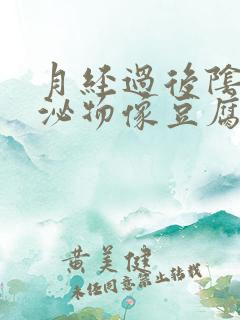 月経過後陰
泌物像豆腐
黄美健
未任同意禁止转载